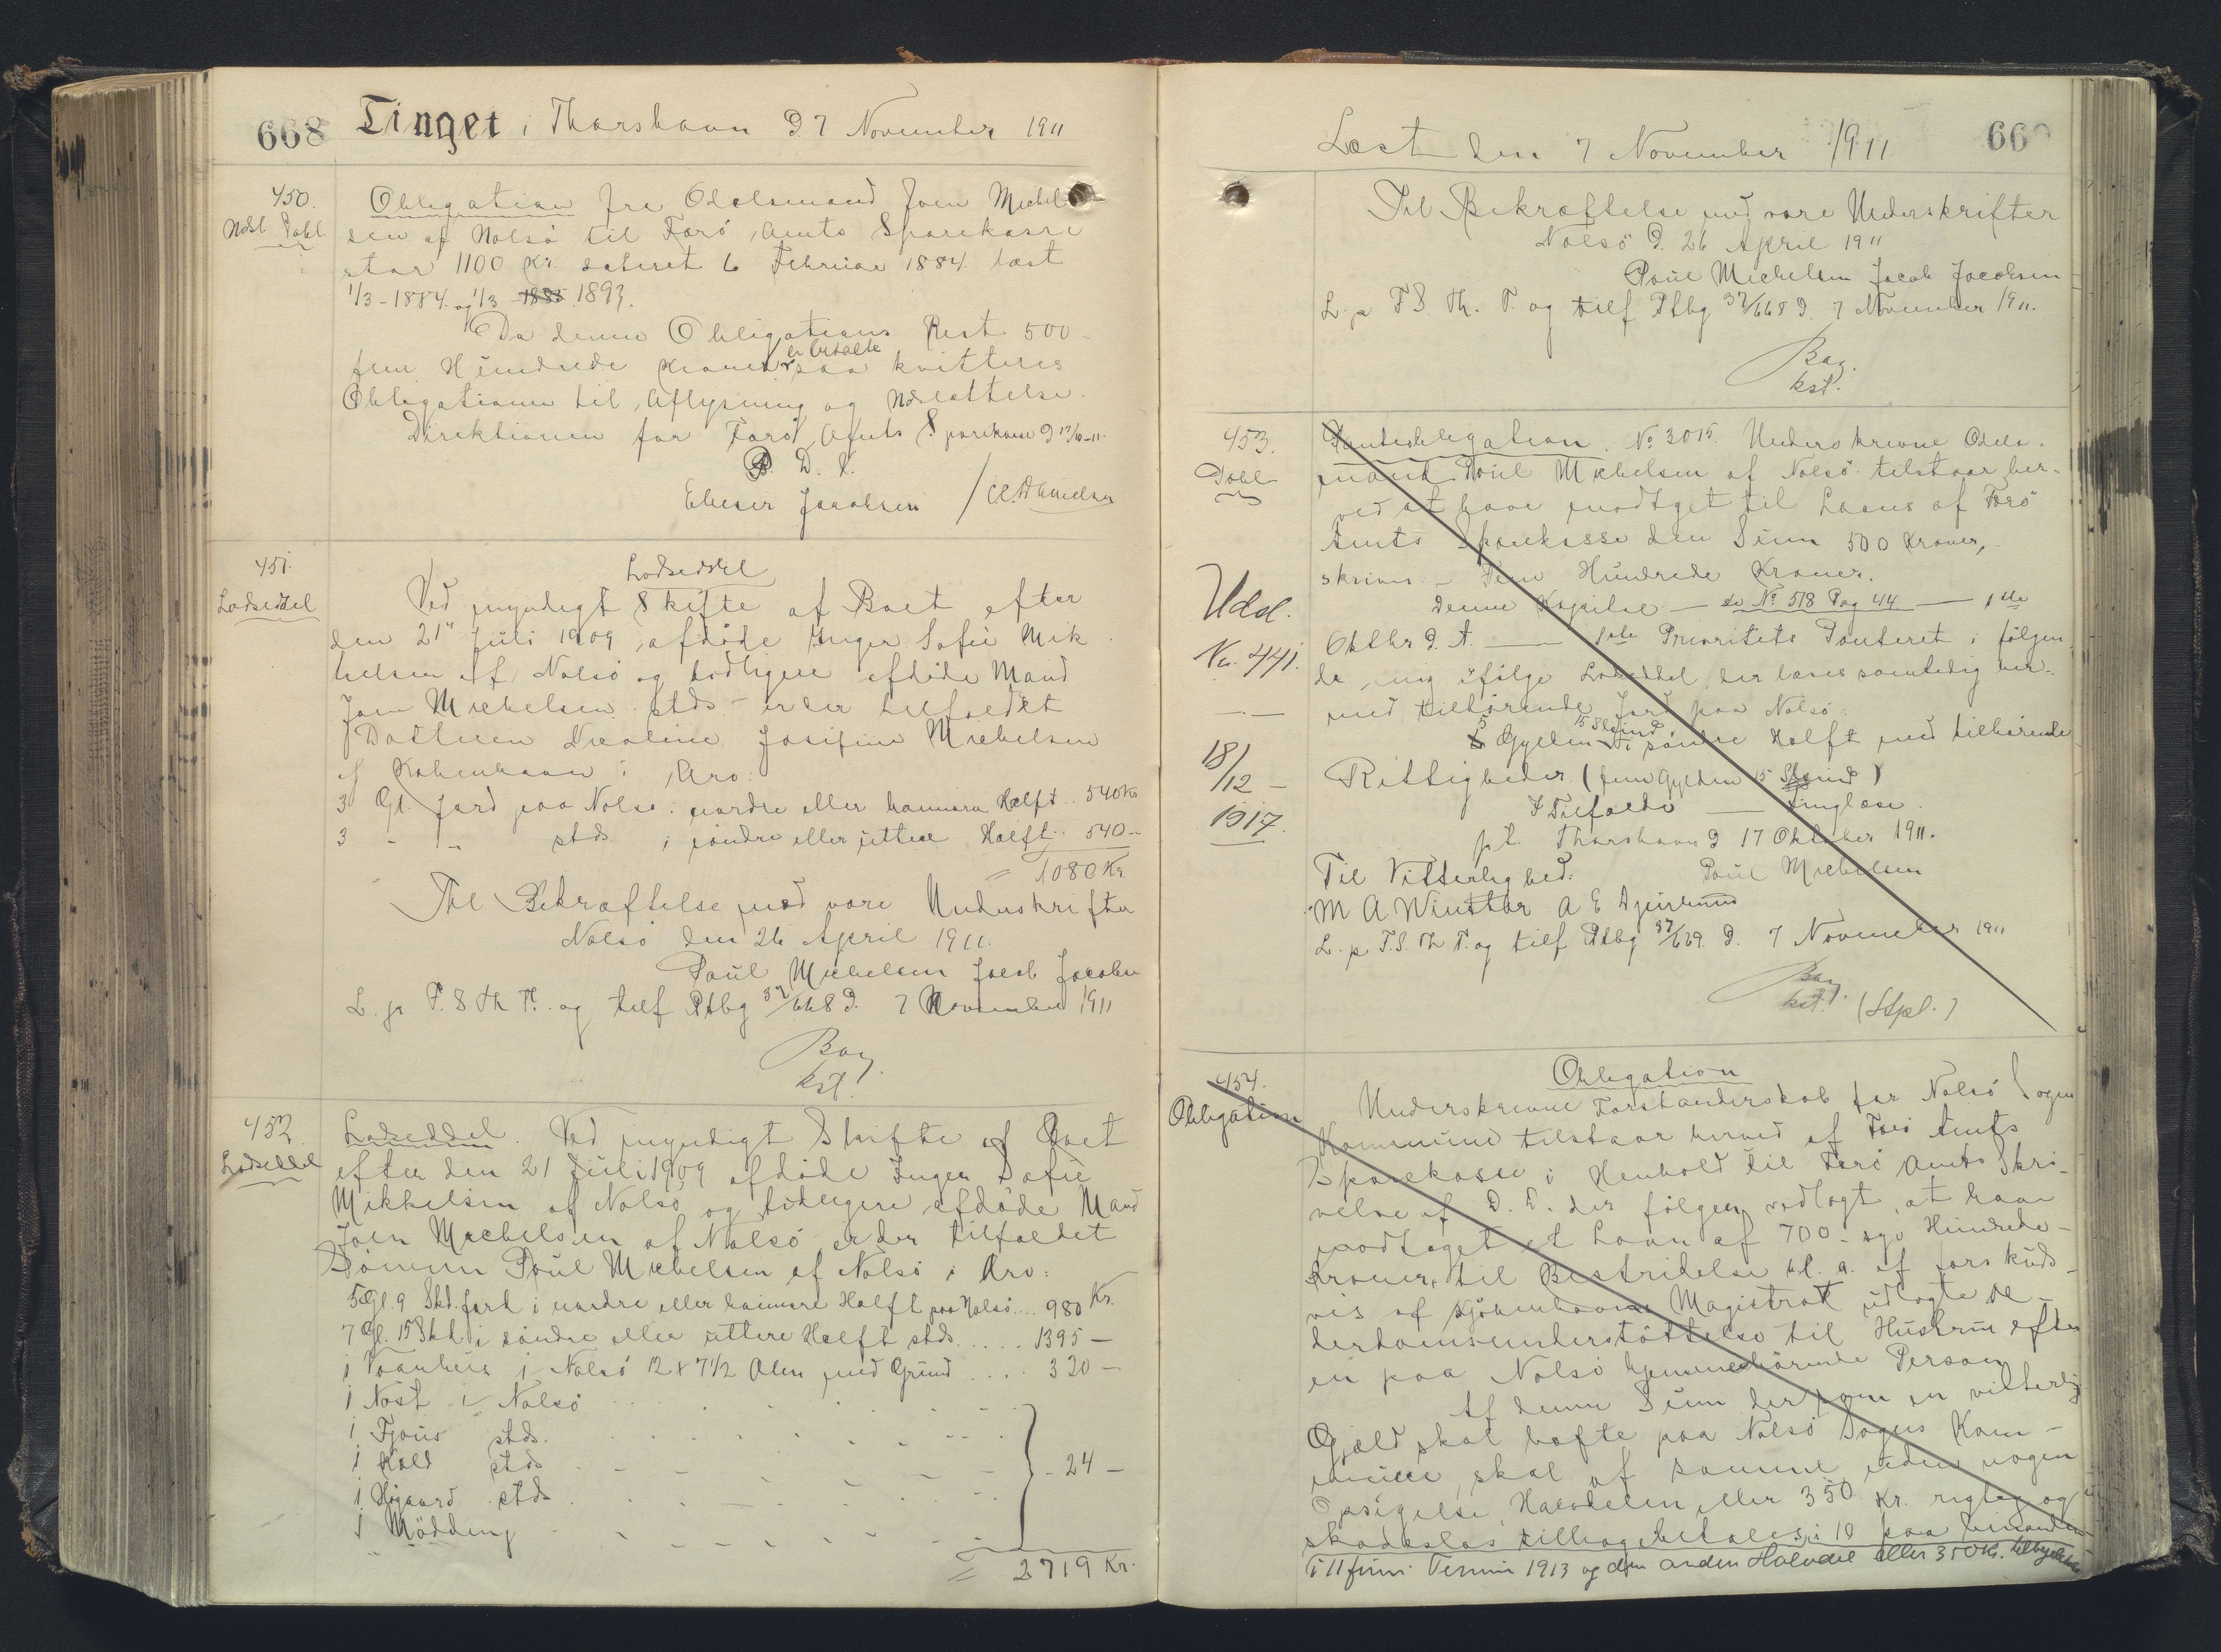 668 Tinget i Thorshavn D. 7 November 1911
450.
Udsl. Pobl.
Obligation fra Odelsmand Joen Michel
sen af Nolsö til Færö Amts Sparekasse
stor 1100 Kr. dateret 6 Februar 1884 læst
1/3-1884 og 1/3 1885 1893.
Da denne Obligations Rest 500
fem Hundrede Kroner er betalte saa kvitteres
Obligationen til Aflysning og Udslettelse.
Direktionen for Færö Amts Sparekasse D 17/10-11.
P. D. V.
Elieser Jacobsen / C. Danielsen
451.
Lodseddel
Lodseddel
Ved myndigt Skifte af Boet efter
den 21" Juli 1909 afdöde Inger Sofie Mik
kelsen af Nolsö og tidligere afdöde Mand
Joen Michelsen stds - er der tilfaldet
Datteren Nicoline Josefine Michelsen
af Köbenhavn i Arv:
3 Gl. Jord paa Nolsö i nordre eller hammere Halft .. 540 Kr
3 - - stds. i söndre eller yttere Halft .. 540 -
= 1080 Kr.
Til Bekræftelse med vore Underskrifter
Nolsö den 26 April 1911.
Poul Michelsen Jacob Jacobsen
L. p. F. S. Th. T. og tilf Ptbg 37/668 D. 7 November 1911
Bay.
kst.
452.
Lodseddel
Lodseddel. Ved myndigt Skifte af Boet
efter den 21 Juli 1909 afdöde Inger Sofie
Mikkelsen af Nolsö og tidligere afdöde Mand
Joen Michelsen af Nolsö er der tilfaldet
Sönnen Poul Michelsen af Nolsö i Arv:
5 Gl. 9 Skd. Jord i nordre eller hammere Halft paa Nolsö ... 980 Kr.
7 Gl. 15 Skd. i söndre eller yttere Halft stds. .... 1395 -
1 Vaanhus i Nolsö 12 x 7 1/2 Alen med Grund .... 320 -
1 Nöst i Nolsö
1 Fjøus stds.
1 Kald stds
1 Hjgaard stds
1 Mödding
- 24 -
= 2719 Kr.
Læst den 7 November 1911. 66
Til Bekræftelse med vore Underskrifter
Nolsö D. 26 April 1911
Poul Michelsen Jacob Jacobsen
L. p. F. S. Th. T. og tilf Ptbg 37/668 D. 7 November 1911.
Bay.
kst.
453.
Pobl.
Udsl.
No. 441.
18/12 -
1917.
Panteobligation. No 3015. Underskrevne Odels-
mand Poul Michelsen af Nolsö tilstaar her-
ved at have modtget til Laans af Færö
Amts Sparekasse den Sum 500 Kroner,
skriver - Fem Hundrede Kroner.
Denne Kapital - se No 518 Pag 44 - 1ste
Oktbr D. A. - 1ste Prioritets Panteret i fölgen
de mig ifölge Lodseddel der læses samtidig her-
med tilhörende Jord paa Nolsö:
5 Gylden 15 Skind i söndre Halft med tilhörende
Rettigheder (fem Gylden 15 Skind)
I Tilfælde - tinglæse.
p. t. Thorshavn D 17 Oktober 1911.
Til Vitterlighed: Poul Michelsen
M A Winther A E Djurhuus
L. p. F. S. Th T. og tilf Ptbg 37/669. D. 7 November 1911
Bay.
kst. (Stpl.)
454.
Obligation
Obligation
Underskrevne Forstanderskab for Nolsö Sogns
Kommune tilstaar herved af Færö Amts
Sparekasse i Henhold til Færö Amts Skri-
velse af D. D. der fölger vedlagt, at have
modtaget et Laan af 700 - syv Hundrede -
Kroner, til Bestridelse bl. a. af forskuds-
vis af Kjöbenhavns Magistrat udlagte Al-
derdomsunderstöttelse til Hustru efter
en paa Nolsö hjemmehörende Person
Af denne Sum der som en vitterlig
Gjæld skal hæfte paa Nolsö Sogns Kom-
mune, skal af samme uden nogen
Opsigelse, Halvdelen eller 350 Kr. rigtig og
skadeslös tilbagebetales i 10 paa hinanden
i 11 Juni Termin 1913 og den anden Halvdel eller 350 Kr.